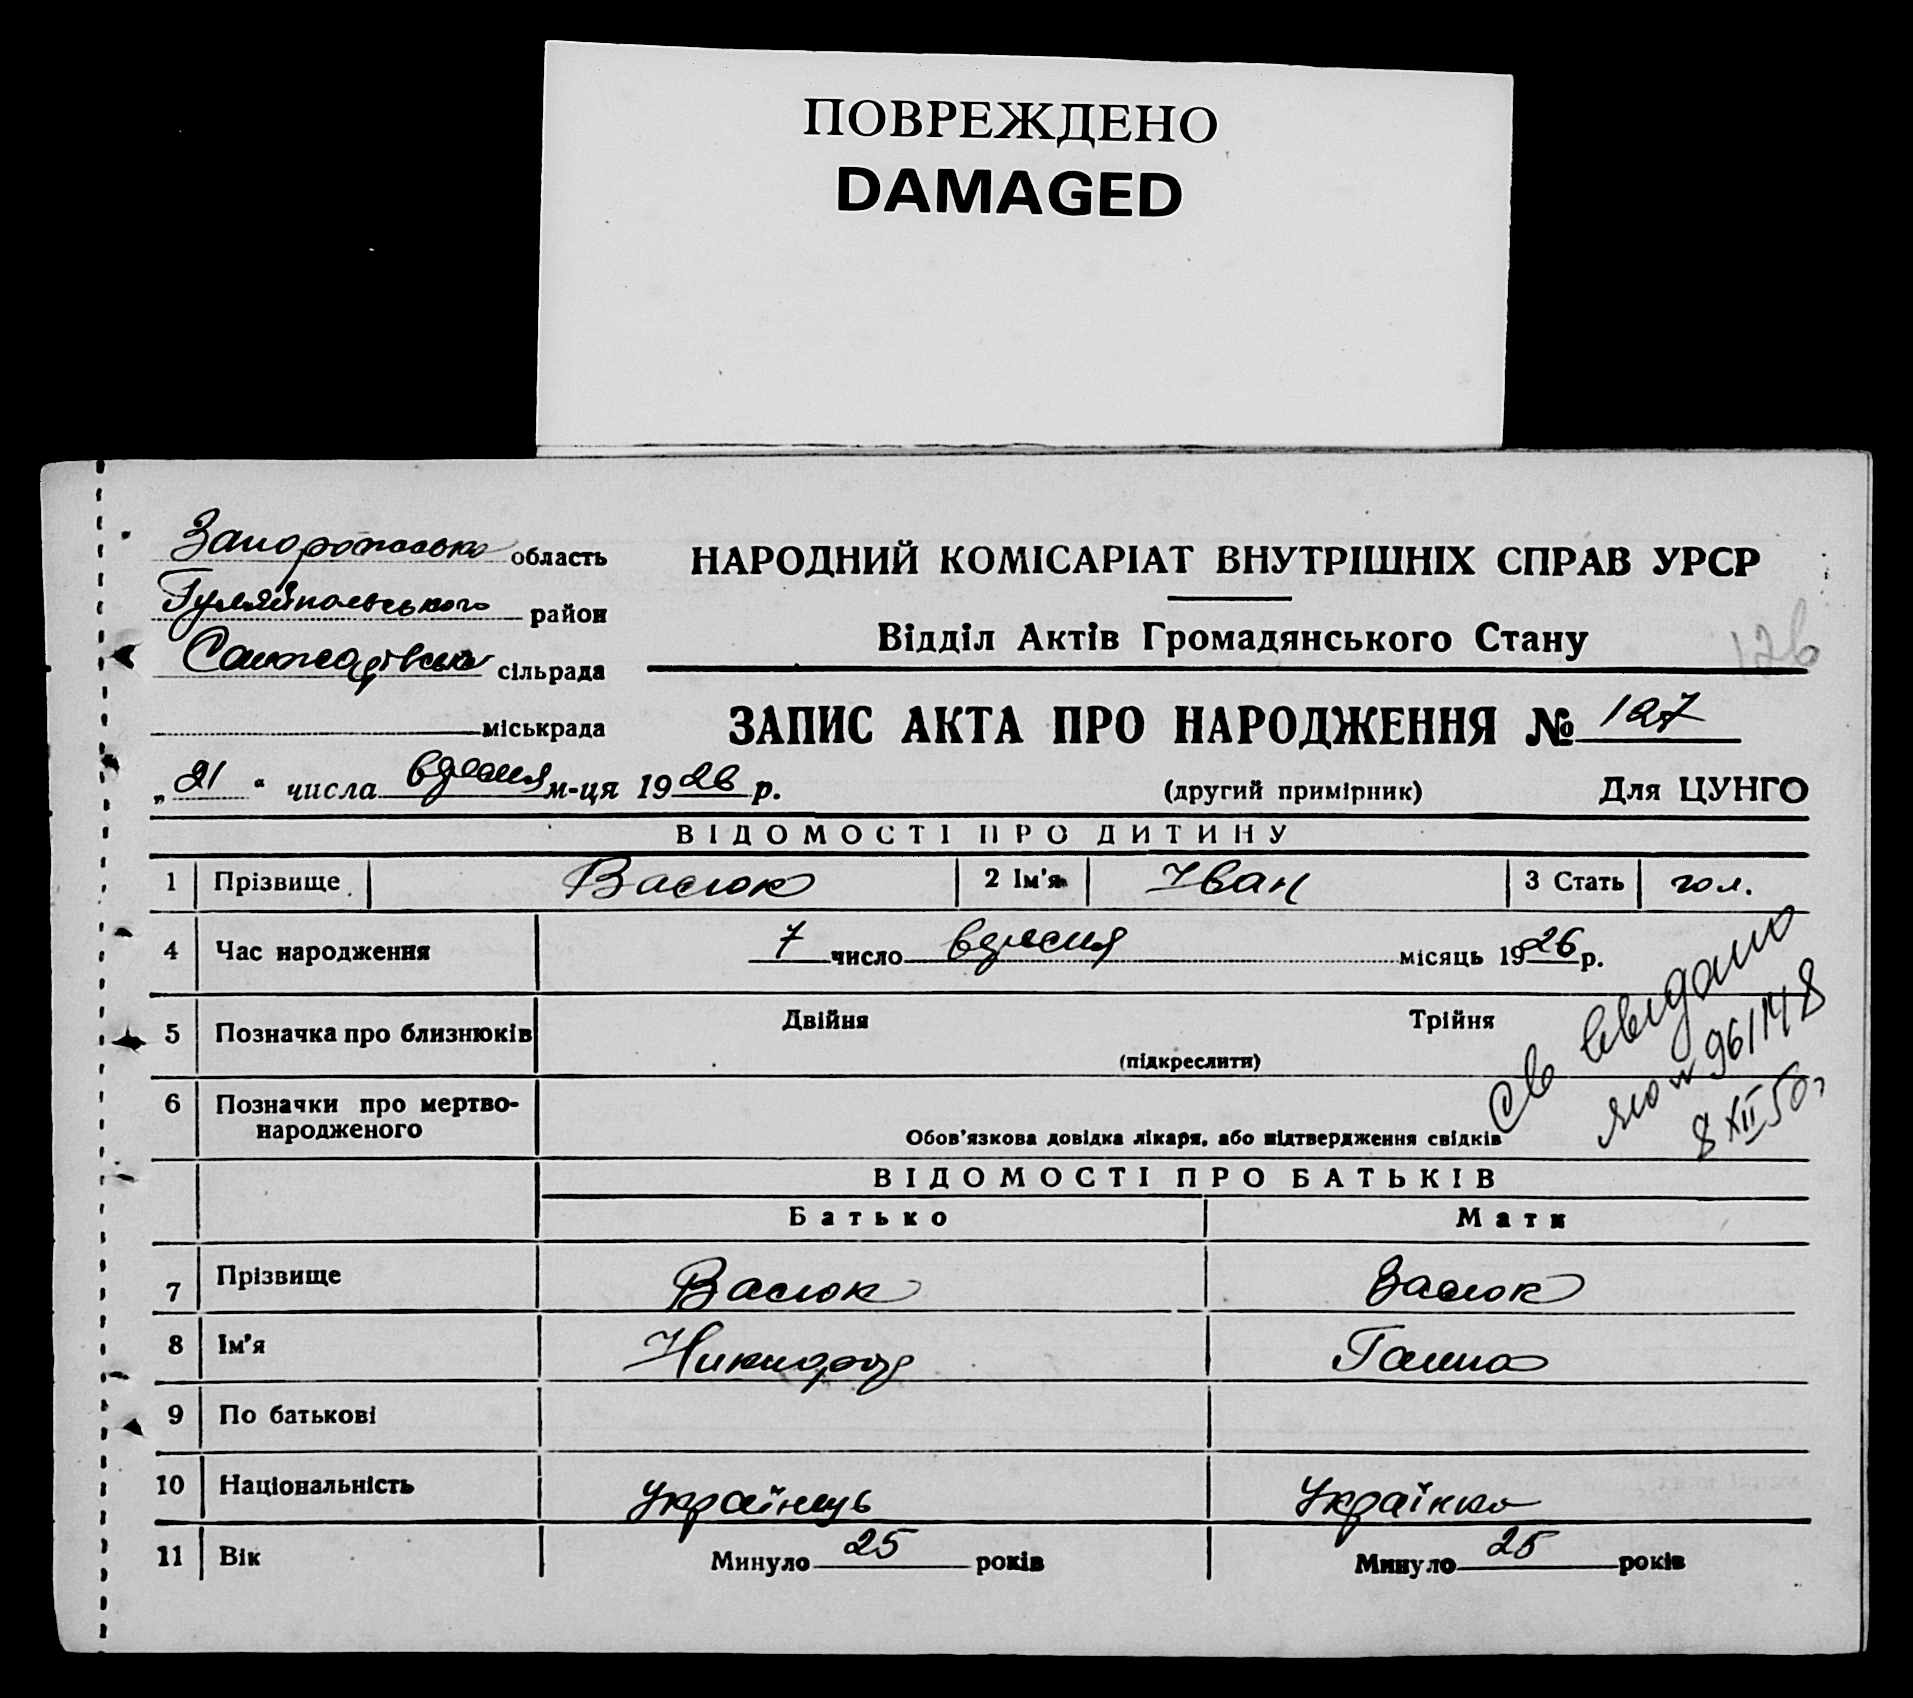 ПОВРЕЖДЕНО
DAMAGED
Запорожська область
Гуляйпольського район
сільрада
міськрада
НАРОДНИЙ КОМІСАРІАТ ВНУТРІШНІХ СПРАВ УРСР
Відділ Актів Громадянського Стану
126
ЗАПИС АКТА ПРО НАРОДЖЕННЯ № 127
„21“ числа вресня м-ця 1926 р.
(другий примірник) Для ЦУНГО
ВІДОМОСТІ ПРО ДИТИНУ
1 Прізвище Васюк 2 Ім'я Іван 3 Стать гол.
4 Час народження 7 число вресня місяць 1926 р.
5 Позначка про близнюків Двійня Трійня
(підкреслити)
6 Позначки про мертво-
народженого
Обов'язкова довідка лікаря, або підтвердження свідків
св выдано
яю № 961148
8 XII 50г
ВІДОМОСТІ ПРО БАТЬКІВ
Батько Мати
7 Прізвище Васюк Васюк
8 Ім'я Никифор Ганна
9 По батькові
10 Національність Українець Українка
11 Вік Минуло 25 років Минуло 25 років